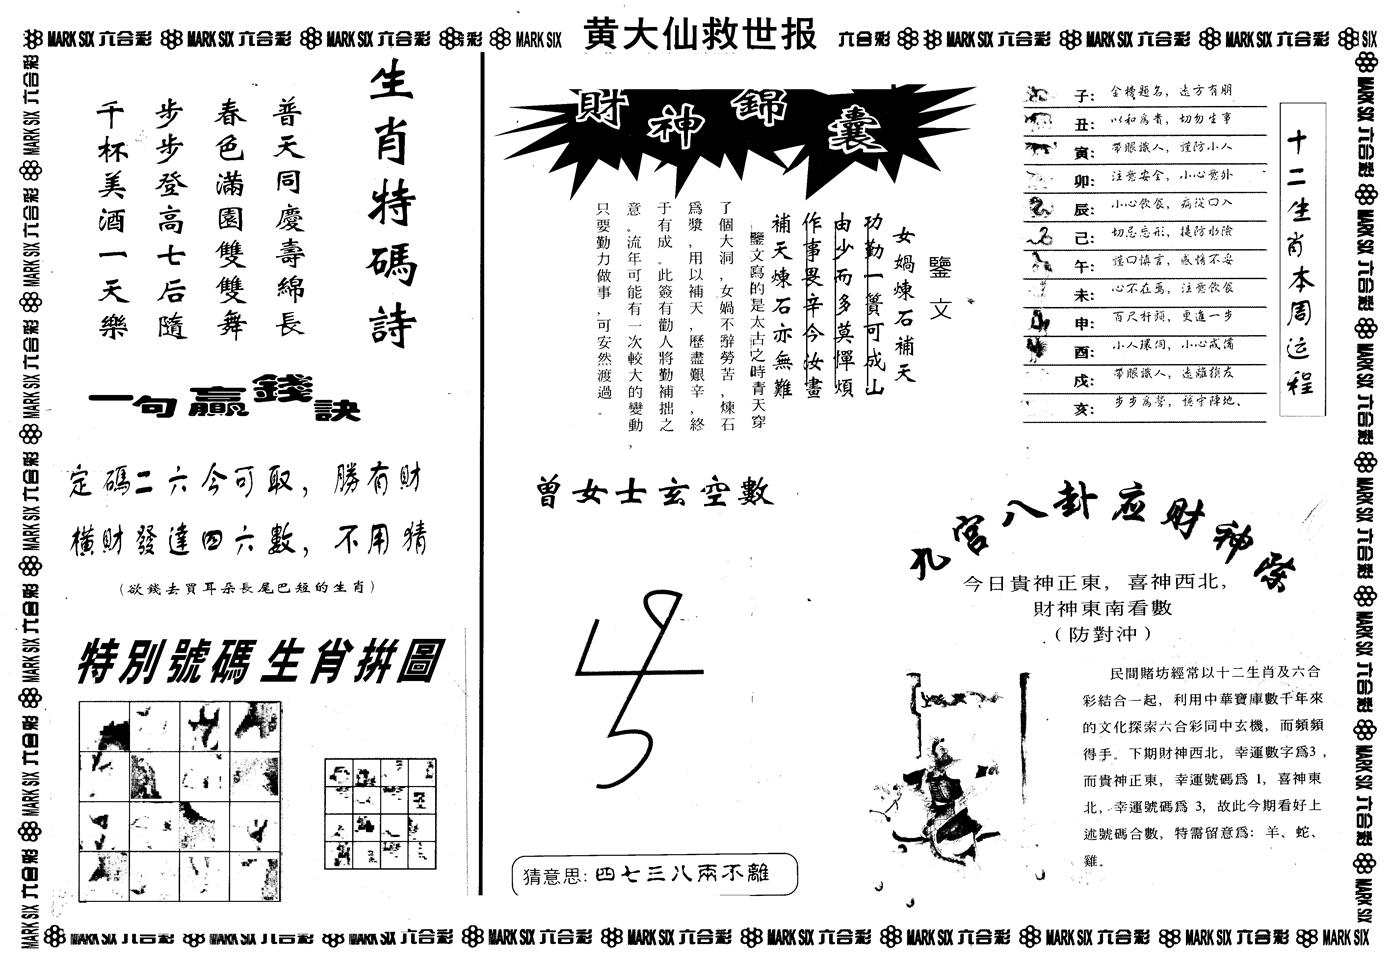 黄大仙救世报
MARK SIX 六合彩
生肖特碼詩
普天同慶壽綿長
春色滿園雙雙舞
步步登高七后隨
千杯美酒一天樂
一句贏錢訣
定碼二六今可取，勝有財
橫財發達四六數，不用猜
（欲錢去買耳朵長尾巴短的生肖）
特別號碼生肖拼圖
財神錦囊
鑒文
女媧煉石補天
功勤一簣可成山
由少而多莫憚煩
作事畏辛今汝畫
補天煉石亦無難
鑒文寫的是太古之時青天穿
了個大洞,女媧不辭勞苦,煉石
爲漿,用以補天,歷盡艱辛,終
于有成。此簽有勸人將勤補拙之
意。流年可能有一次較大的變動,
只要勤力做事,可安然渡過。
曾女士玄空數
猜意思: 四七三八兩不離
十二生肖本周运程
子: 金榜題名，遠方有朋
丑: 以和爲貴，切勿生事
寅: 帶眼識人，謹防小人
卯: 注意安全，小心意外
辰: 小心飲食，病從口入
己: 切忌忘形，提防水險
午: 謹口慎言，感情不妥
未: 心不在焉，注意飲食
申: 百尺杆頭，更進一步
酉: 小人環伺，小心戒備
戌: 帶眼識人，遠離損友
亥: 步步爲營，謹守陣地、
九宮八卦应財神際
今日貴神正東，喜神西北，
財神東南看數
（防對沖）
民間賭坊經常以十二生肖及六合
彩結合一起，利用中華寶庫數千年來
的文化探索六合彩同中玄機，而頻頻
得手。下期財神西北，幸運數字爲3，
而貴神正東，幸運號碼爲 1，喜神東
北，幸運號碼爲 3，故此今期看好上
述號碼合數，特需留意爲：羊、蛇、
雞。